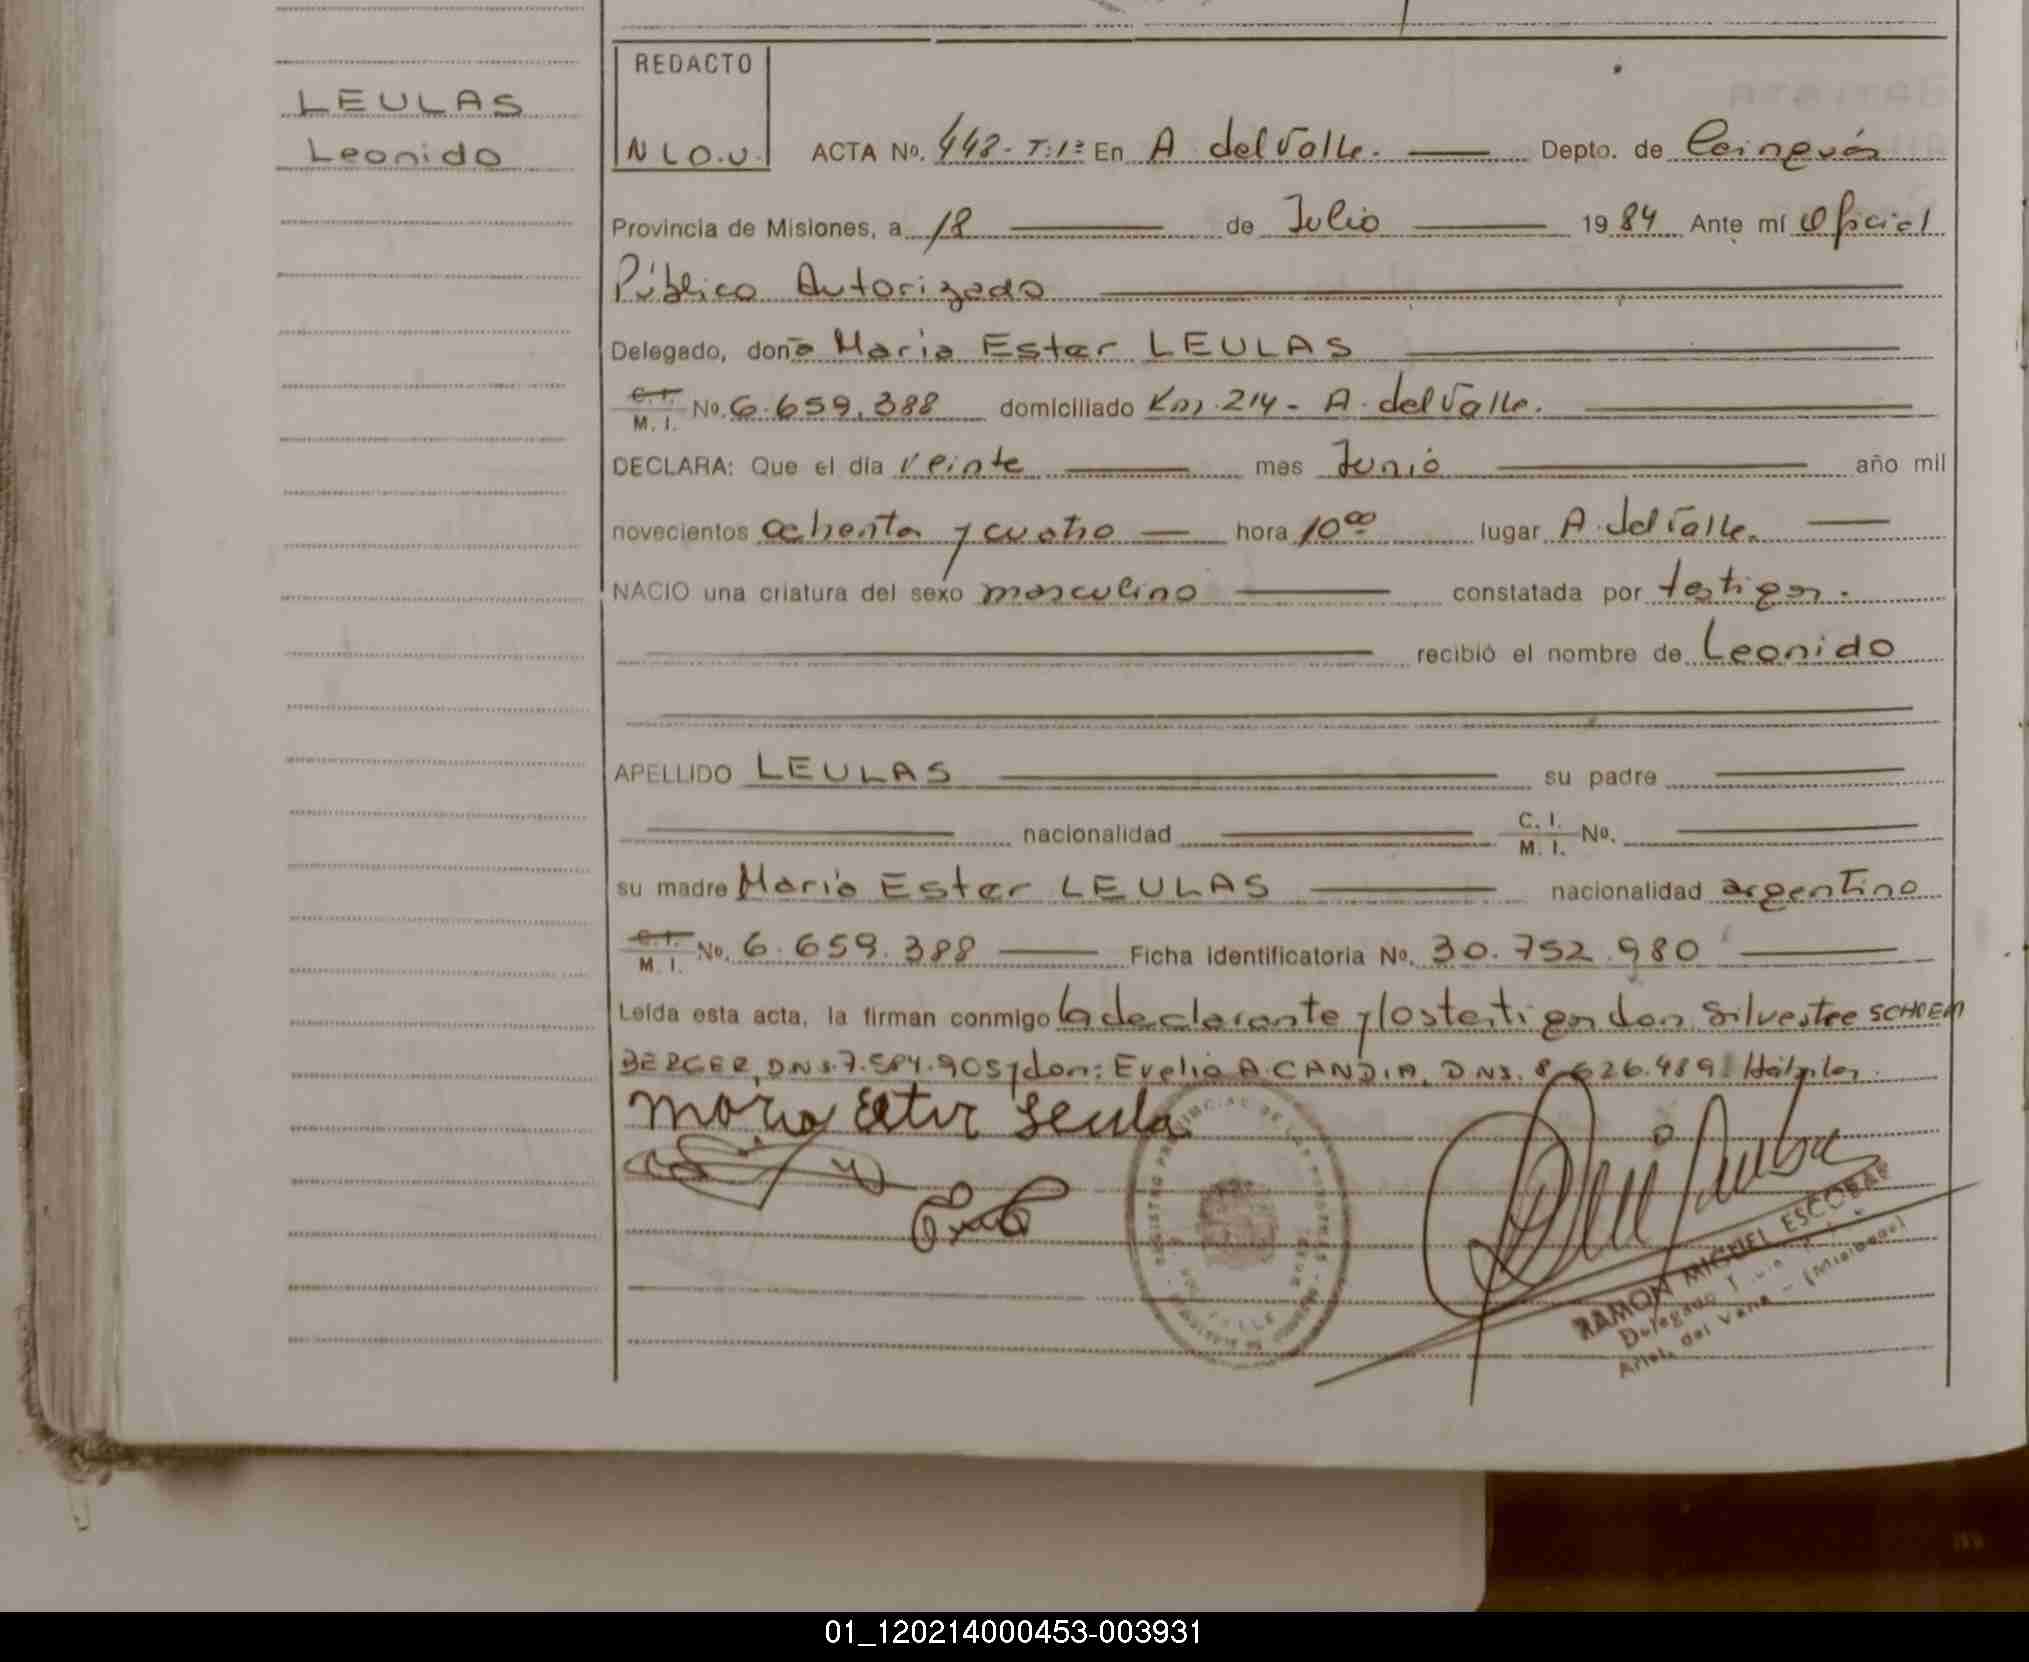 LEULAS
Leonido
REDACTO
N L O.U.
ACTA No. 448- T:1º En A del Valle. Depto. de Cainguás
Provincia de Misiones, a 18 de Julio 1984 Ante mí Oficial
Público Autorizado
Delegado, doña Maria Ester LEULAS
C. I. / M. I. No. 6.659.388 domiciliado Km. 214 - A. del Valle.
DECLARA: Que el día veinte mes Junio año mil
novecientos ochenta y cuatro hora 10⁰⁰ lugar A. del Valle.
NACIO una criatura del sexo masculino constatada por testigos.
recibió el nombre de Leonido
APELLIDO LEULAS su padre
nacionalidad C. I. / M. I. No.
su madre Maria Ester LEULAS nacionalidad argentina
C. I. / M. I. No. 6.659.388 Ficha identificatoria No. 30.752.980
Leída esta acta, la firman conmigo la declarante y los testigos don Silvestre SCHOEM
BERGER, D.N.I. 7.584.905 y don: Evelio A. CANDIA, D.N.I. 8.626.489. Hábiles.
Maria Ester Leula
REGISTRO PROVINCIAL DE LAS PERSONAS
RAMON MIGUEL ESCOBAR
Delegado
Aristó. del Valle - (Misiones)
01_120214000453-003931